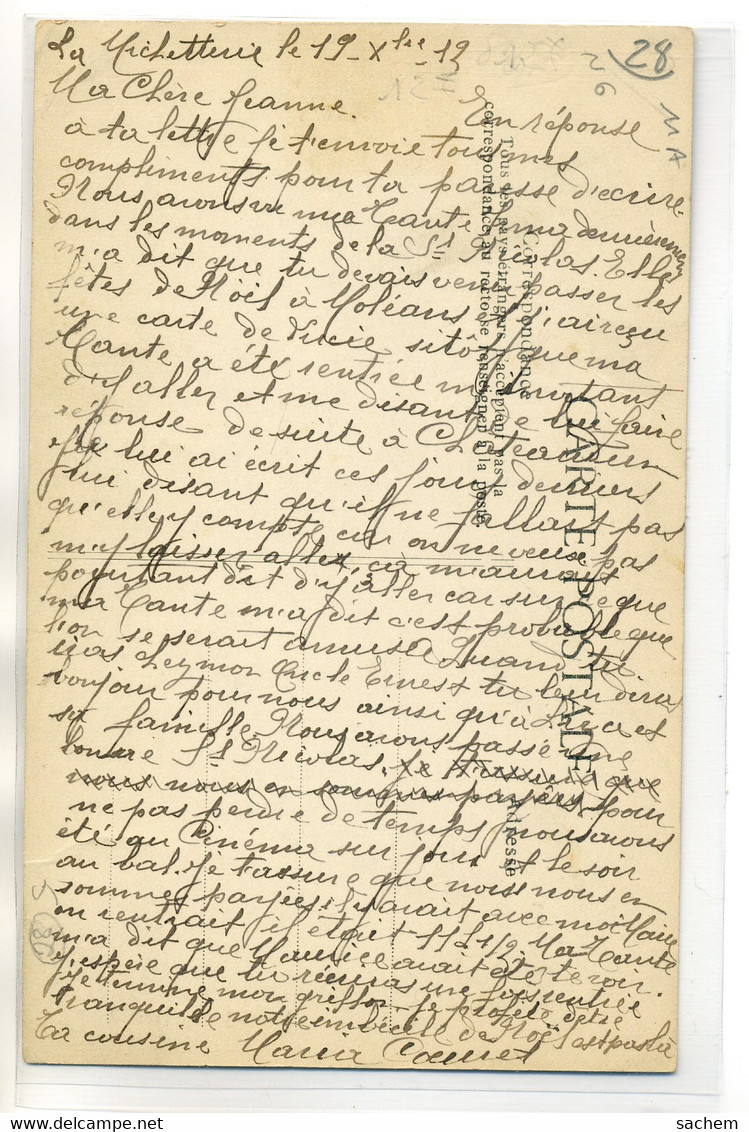 La Michetterie le 19 - Xbre 12
Ma Chère Jeanne. En réponse
à ta lettre je t'envoie tous mes
compliments pour ta paresse d'écrire.
Nous avons vu ma Tante Irma dernièrement
dans les moments de la St Nicolas. Elle
m'a dit que tu devais venir passer les
fêtes de Noël à Moléans et j'ai reçu
une carte de Lucie sitôt que ma
Tante a été rentrée m'invitant
d'y aller et me disant de lui faire
réponse de suite à Châteaudun
Je lui ai écrit ces jours derniers
lui disant qu'il ne fallait pas
qu'elle y compte car on ne veut pas
m'y laisser aller, ça m'aurait
pourtant dit d'y aller car sur ce que
ma Tante m'a dit c'est probable que
l'on se serait amusé. Quand tu
iras chez mon Oncle Ernest tu leur diras
bonjour pour nous ainsi qu'à et
sa famille. Nous avons passé une
bonne St Nicolas. Je t'assure que
nous nous en sommes payées, pour
ne pas perdre de temps nous avons
été au Cinéma sur jour et le soir
au bal. Je t'assure que nous nous en
sommes payées il y avait avec moi
en rentrait il était 11 h 1/2. Ma Tante
m'a dit que Maurice avait été te voir.
J'espère que tu
Je termine mon griffon. Je profite d'être
tranquille notre imbécile de Noël est pas là
Ta cousine Maria
CARTE POSTALE
Correspondance
Adresse
Tous les pays étrangers n'acceptent pas la
correspondance au recto se renseigner à la poste
28
sachem